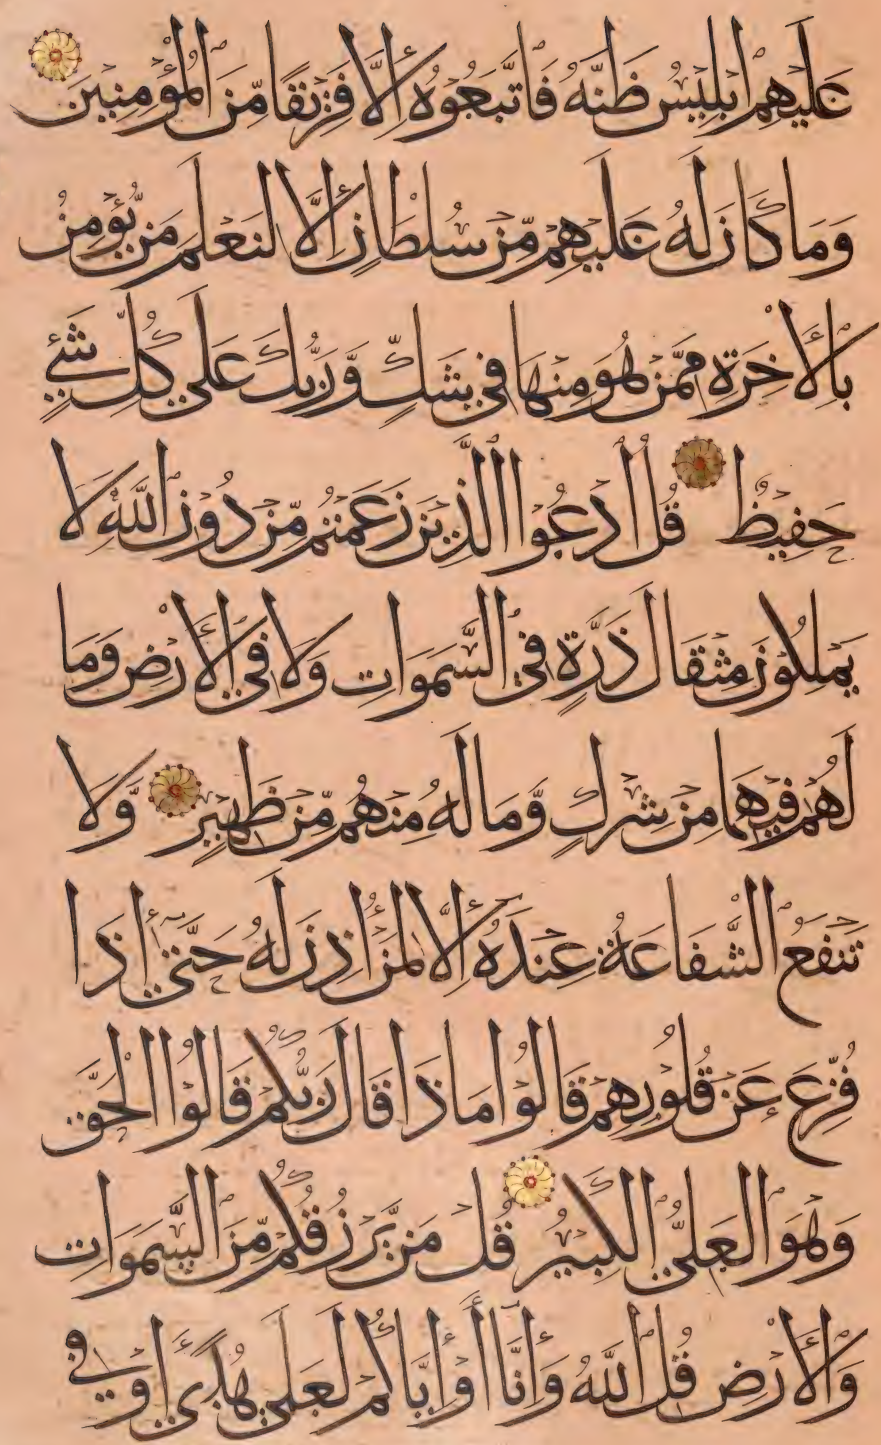 عَلَيْهِمْ إِبْلِيسُ ظَنَّهُ فَاتَّبَعُوهُ إِلَّا فَرِيقًا مِّنَ الْمُؤْمِنِينَ
وَمَا كَانَ لَهُ عَلَيْهِم مِّن سُلْطَانٍ إِلَّا لِنَعْلَمَ مَن يُؤْمِنُ
بِالْأَخِرَةِ مِمَّنْ هُوَ مِنْهَا فِي شَكٍّ وَّرَبُّكَ عَلَى كُلِّ شَيْءٍ
حَفِيظٌ قُلِ ادْعُوا الَّذِينَ زَعَمْتُم مِّن دُونِ اللَّهِ لَا
يَمْلِكُونَ مِثْقَالَ ذَرَّةٍ فِي السَّمَوَاتِ وَلَا فِي الْأَرْضِ وَمَا
لَهُمْ فِيهِمَا مِن شِرْكٍ وَّمَا لَهُ مِنْهُم مِّن ظَهِيرٍ وَّلَا
تَنفَعُ الشَّفَاعَةُ عِندَهُ إِلَّا لِمَنْ أَذِنَ لَهُ حَتَّى إِذَا
فُزِّعَ عَن قُلُوبِهِمْ قَالُوا مَاذَا قَالَ رَبُّكُمْ قَالُوا الْحَقَّ
وَهُوَ الْعَلِيُّ الْكَبِيرُ قُلْ مَن يَّرْزُقُكُم مِّنَ السَّمَوَاتِ
وَالْأَرْضِ قُلِ اللَّهُ وَإِنَّا أَوْ إِيَّاكُمْ لَعَلَى هُدًى أَوْ فِي